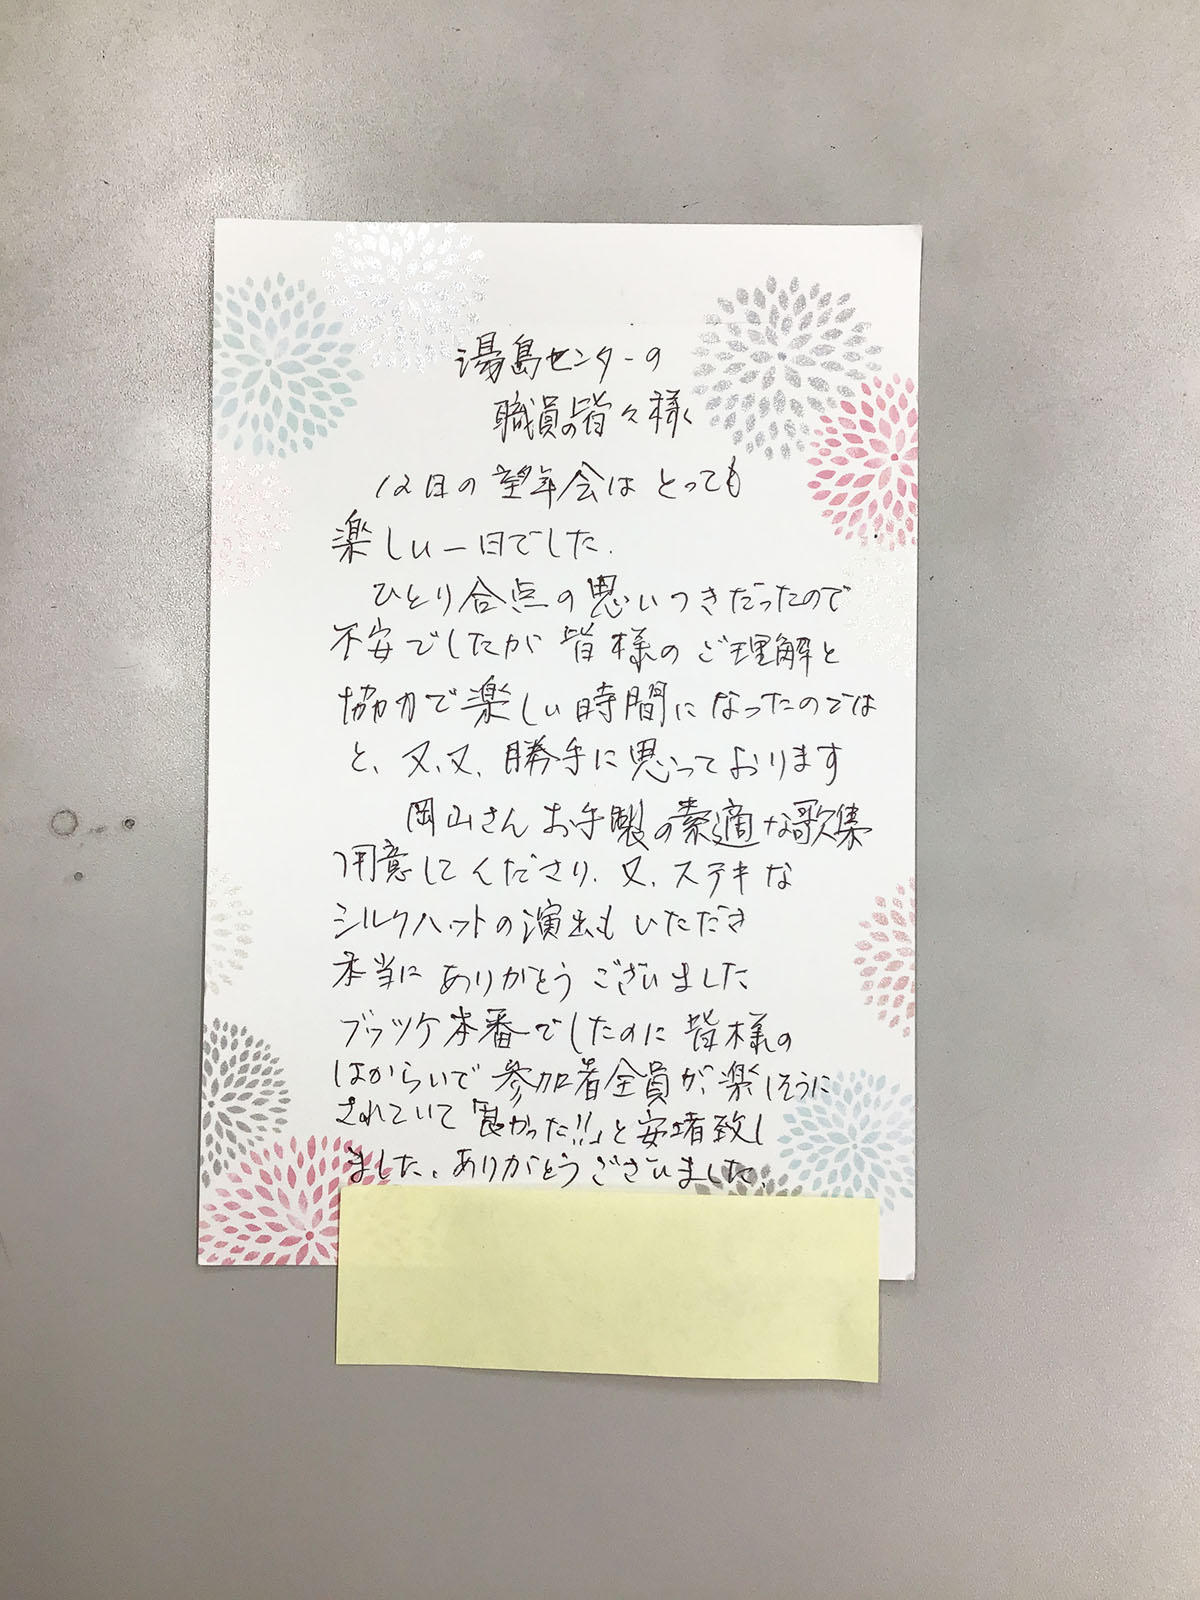 湯島センターの
職員の皆々様
12日の望年会は とっても
楽しい一日でした.
ひとり合点の思いつきだったので
不安でしたが 皆様の ご理解と
協力で楽しい時間に なったのでは
と、又、又、勝手に思っております
岡山さん お手製の素適な歌集
用意してくださり、又、ステキな
シルクハットの演出も いただき
本当に ありがとう ございました
ブッツケ本番でしたのに 皆様の
はからいで 参加者全員が、楽しそうに
されていて「良かった!!」と安堵致し
ました、ありがとうございました、